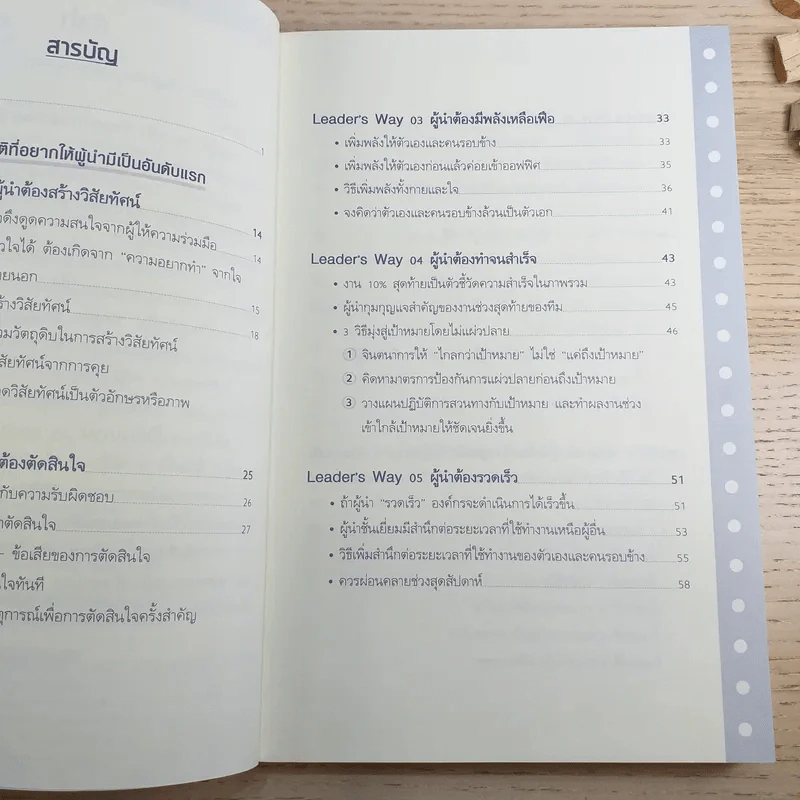 สารบัญ
1
ที่อยากให้ผู้นำมีเป็นอันดับแรก
ผู้นำต้องสร้างวิสัยทัศน์ 14
ดึงดูดความสนใจจากผู้ให้ความร่วมมือ 14
ได้ ต้องเกิดจาก "ความอยากทำ" จากใจ
15
สร้างวิสัยทัศน์ 18
วัตถุดิบในการสร้างวิสัยทัศน์
วิสัยทัศน์จากการคุย
วิสัยทัศน์เป็นตัวอักษรหรือภาพ
ต้องตัดสินใจ 25
กับความรับผิดชอบ 26
ตัดสินใจ 27
- ข้อเสียของการตัดสินใจ
ใจทันที
การณ์เพื่อการตัดสินใจครั้งสำคัญ
Leader's Way 03 ผู้นำต้องมีพลังเหลือเฟือ 33
• เพิ่มพลังให้ตัวเองและคนรอบข้าง 33
• เพิ่มพลังให้ตัวเองก่อนแล้วค่อยเข้าออฟฟิศ 35
• วิธีเพิ่มพลังทั้งกายและใจ 36
• จงคิดว่าตัวเองและคนรอบข้างล้วนเป็นตัวเอก 41
Leader's Way 04 ผู้นำต้องทำจนสำเร็จ 43
• งาน 10% สุดท้ายเป็นตัวชี้วัดความสำเร็จในภาพรวม 43
• ผู้นำกุมกุญแจสำคัญของงานช่วงสุดท้ายของทีม 45
• 3 วิธีมุ่งสู่เป้าหมายโดยไม่แผ่วปลาย 46
① จินตนาการให้ "ไกลกว่าเป้าหมาย" ไม่ใช่ "แค่ถึงเป้าหมาย"
② คิดหามาตรการป้องกันการแผ่วปลายก่อนถึงเป้าหมาย
③ วางแผนปฏิบัติการสวนทางกับเป้าหมาย และทำผลงานช่วง
เข้าใกล้เป้าหมายให้ชัดเจนยิ่งขึ้น
Leader's Way 05 ผู้นำต้องรวดเร็ว 51
• ถ้าผู้นำ "รวดเร็ว" องค์กรจะดำเนินการได้เร็วขึ้น 51
• ผู้นำชั้นเยี่ยมมีสำนึกต่อระยะเวลาที่ใช้ทำงานเหนือผู้อื่น 53
• วิธีเพิ่มสำนึกต่อระยะเวลาที่ใช้ทำงานของตัวเองและคนรอบข้าง 55
• ควรผ่อนคลายช่วงสุดสัปดาห์ 58